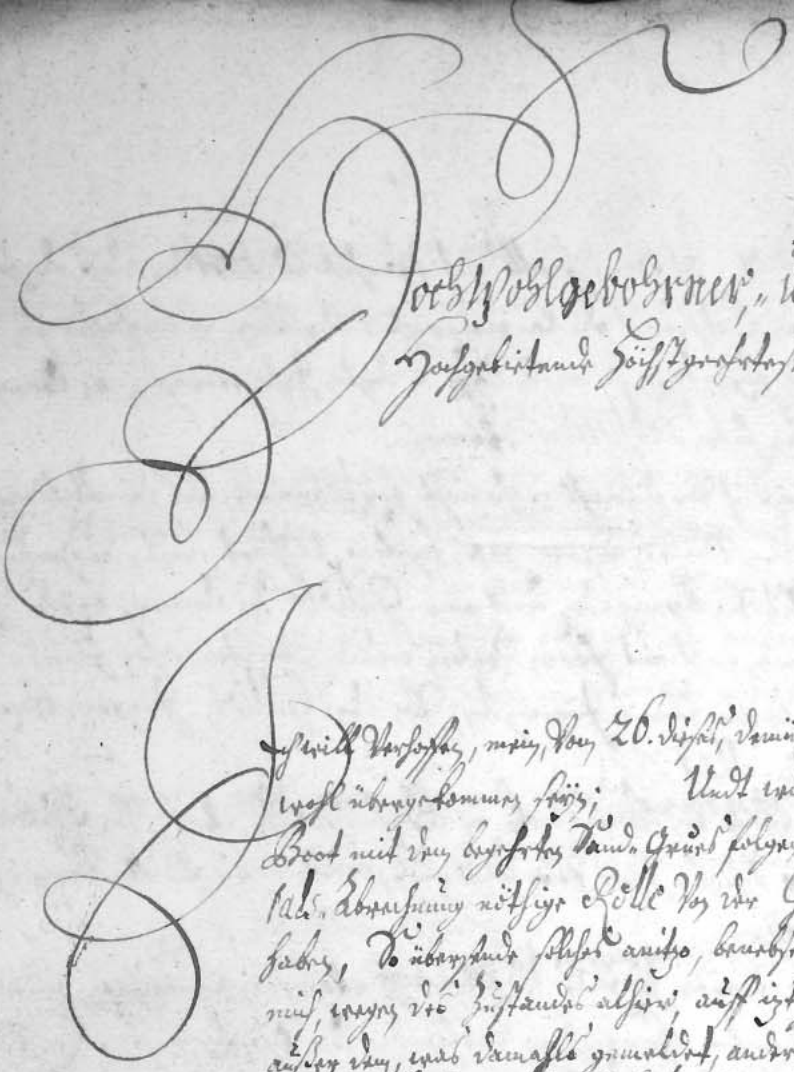 HochWohlgebohrner,
Hochgebietende Höchstgeehrtes
Ich will Verhoffen, mein, Vom 26. dieses, demü
wohl übergekommen seyn; Undt
Boot mit dem begehrten Sand-Grues folgen
Abrechnung nöthige Rolle Von der
haben, So übersende solches anitzo, benebst
mich, wegen des Zustandes alhier, auff
außer dem, was damahls gemeldet, ander